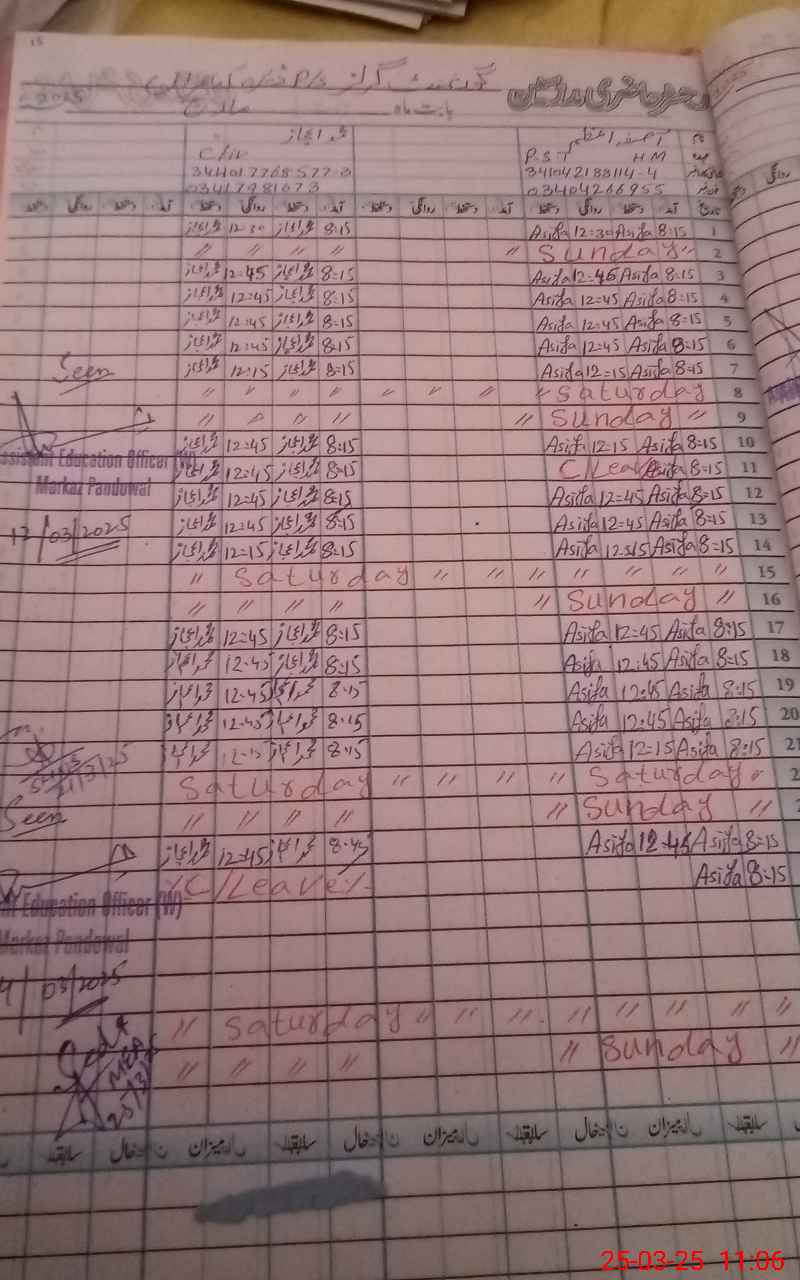 15
گورنمنٹ گرلز P/S
رجسٹر حاضری مدرسین بابت ماہ مارچ 2025
نام آصفہ اعظم
محمد اعجاز
P.S.T HM
341042188114-4
03404266955
344017768577-3
03417981673
تاریخ آمد دستخط روانگی دستخط آمد دستخط روانگی دستخط آمد دستخط روانگی دستخط
1 8:15 Asifa 12:30 Asifa 8:15 محمد اعجاز 12:30 محمد اعجاز
2 " Sunday " " " " "
3 8:15 Asifa 12:45 Asifa 8:15 محمد اعجاز 12:45 محمد اعجاز
4 8:15 Asifa 12:45 Asifa 8:15 محمد اعجاز 12:45 محمد اعجاز
5 8:15 Asifa 12:45 Asifa 8:15 محمد اعجاز 12:45 محمد اعجاز
6 8:15 Asifa 12:45 Asifa 8:15 محمد اعجاز 12:45 محمد اعجاز
7 8:15 Asifa 12:15 Asifa 8:15 محمد اعجاز 12:15 محمد اعجاز
Seen
8 Saturday " " " " " " " "
9 " Sunday " " " " "
10 8:15 Asifa 12:15 Asifa 8:15 محمد اعجاز 12:45 محمد اعجاز
Assistant Education Officer (W)
11 8:15 Asifa C/Leave 8:15 محمد اعجاز 12:45 محمد اعجاز
Markaz Pandowal
12 8:15 Asifa 12:45 Asifa 8:15 محمد اعجاز 12:45 محمد اعجاز
13 8:15 Asifa 12:45 Asifa 8:15 محمد اعجاز 12:45 محمد اعجاز
12/03/2025
14 8:15 Asifa 12:15 Asifa 8:15 محمد اعجاز 12:15 محمد اعجاز
15 " " " " " " " Saturday "
16 " Sunday " " " " "
17 8:15 Asifa 12:45 Asifa 8:15 محمد اعجاز 12:45 محمد اعجاز
18 8:15 Asifa 12:45 Asifa 8:15 محمد اعجاز 12:45 محمد اعجاز
19 8:15 Asifa 12:45 Asifa 8:15 محمد اعجاز 12:45 محمد اعجاز
20 8:15 Asifa 12:45 Asifa 8:15 محمد اعجاز 12:45 محمد اعجاز
21 8:15 Asifa 12:15 Asifa 8:15 محمد اعجاز 12:15 محمد اعجاز
2 Saturday " " " " " Saturday
" Sunday " " " " "
Seen
8:15 Asifa 12:45 Asifa 8:45 محمد اعجاز 12:45 محمد اعجاز
8:15 Asifa C/Leave
Education Officer (W)
Markaz Pandowal
03/2025
" " " " " " " " " Saturday "
" Sunday " " " " "
MEA
25/3/
سابقہ میزان سابقہ میزان سابقہ میزان سابقہ
25-03-25 11:06